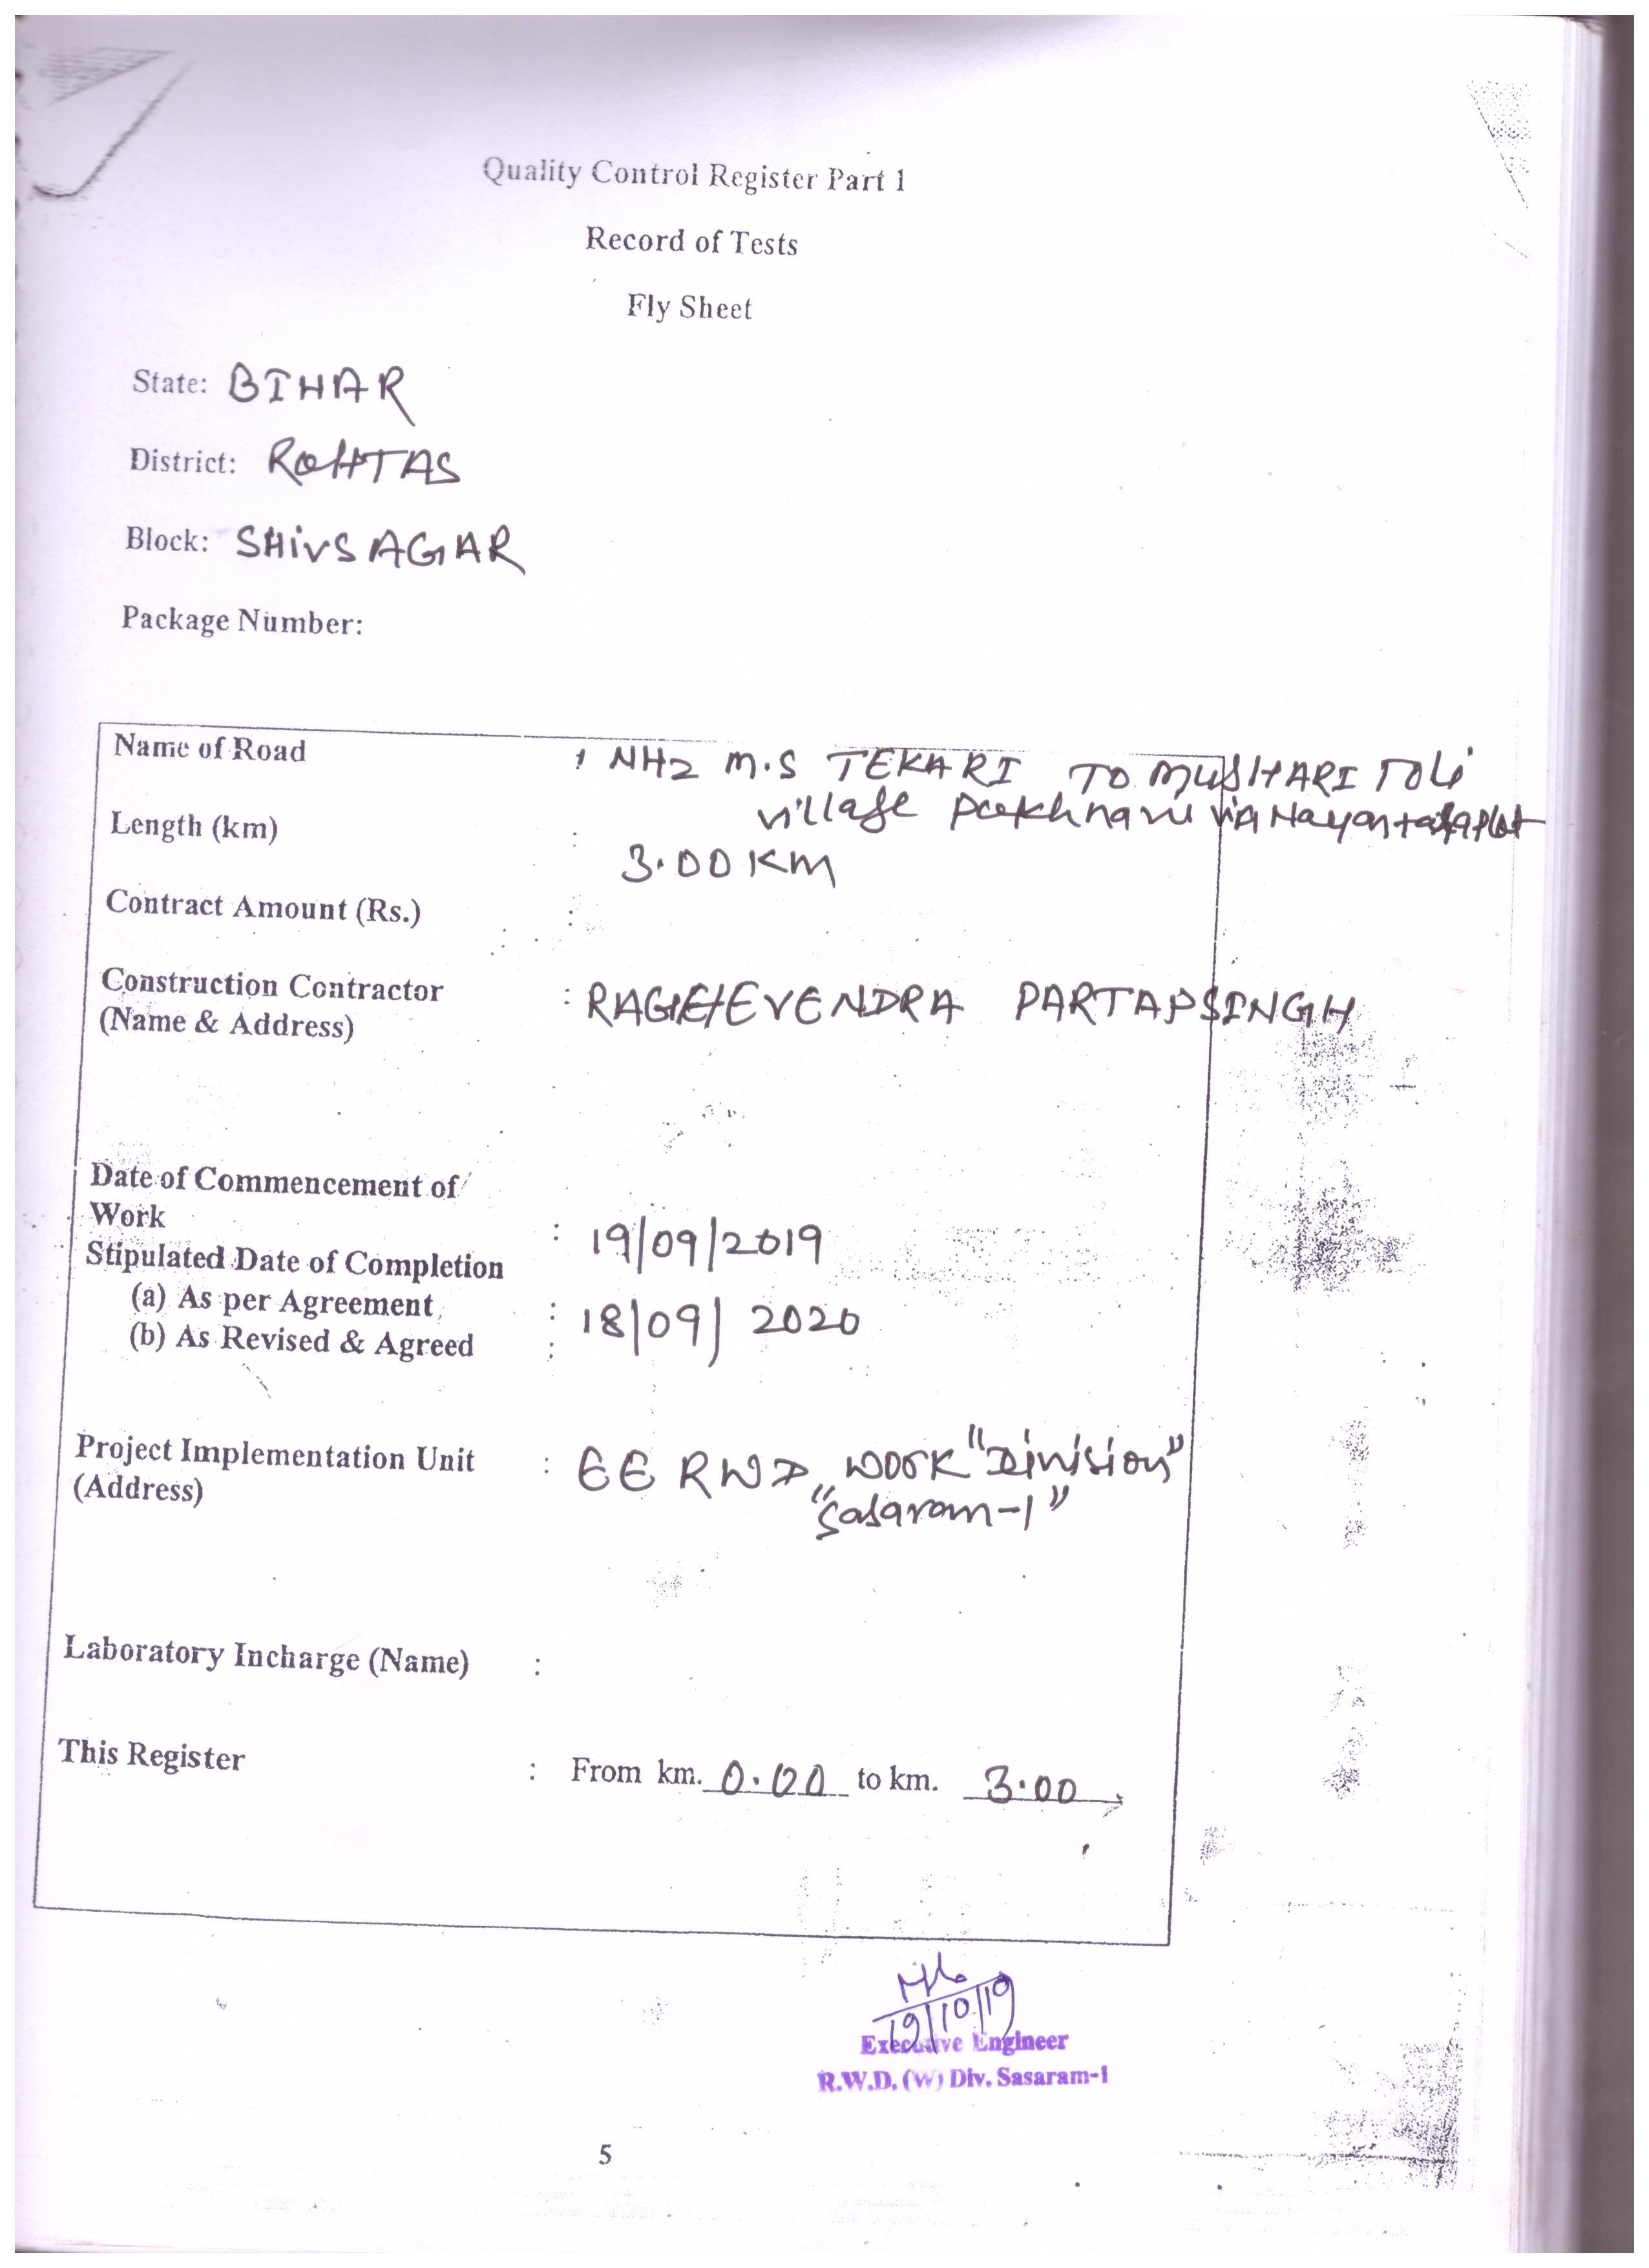 Quality Control Register Part 1
Record of Tests
Fly Sheet
State: BIHAR
District: ROHTAS
Block: SHIVSAGAR
Package Number:
Name of Road : NH2 M.S TEKARI TO MUSHARI TOLI
village via
Length (km) :
3.00 KM
Contract Amount (Rs.) :
Construction Contractor : PARTAP SINGH
(Name & Address)
Date of Commencement of
Work : 19/09/2019
Stipulated Date of Completion
(a) As per Agreement : 18/09/2020
(b) As Revised & Agreed :
Project Implementation Unit : EE RWD, WORK "Division"
(Address) "Sasaram-1"
Laboratory Incharge (Name) :
This Register : From km. 0.00 to km. 3.00
19/10/19
Executive Engineer
R.W.D. (W) Div. Sasaram-1
5